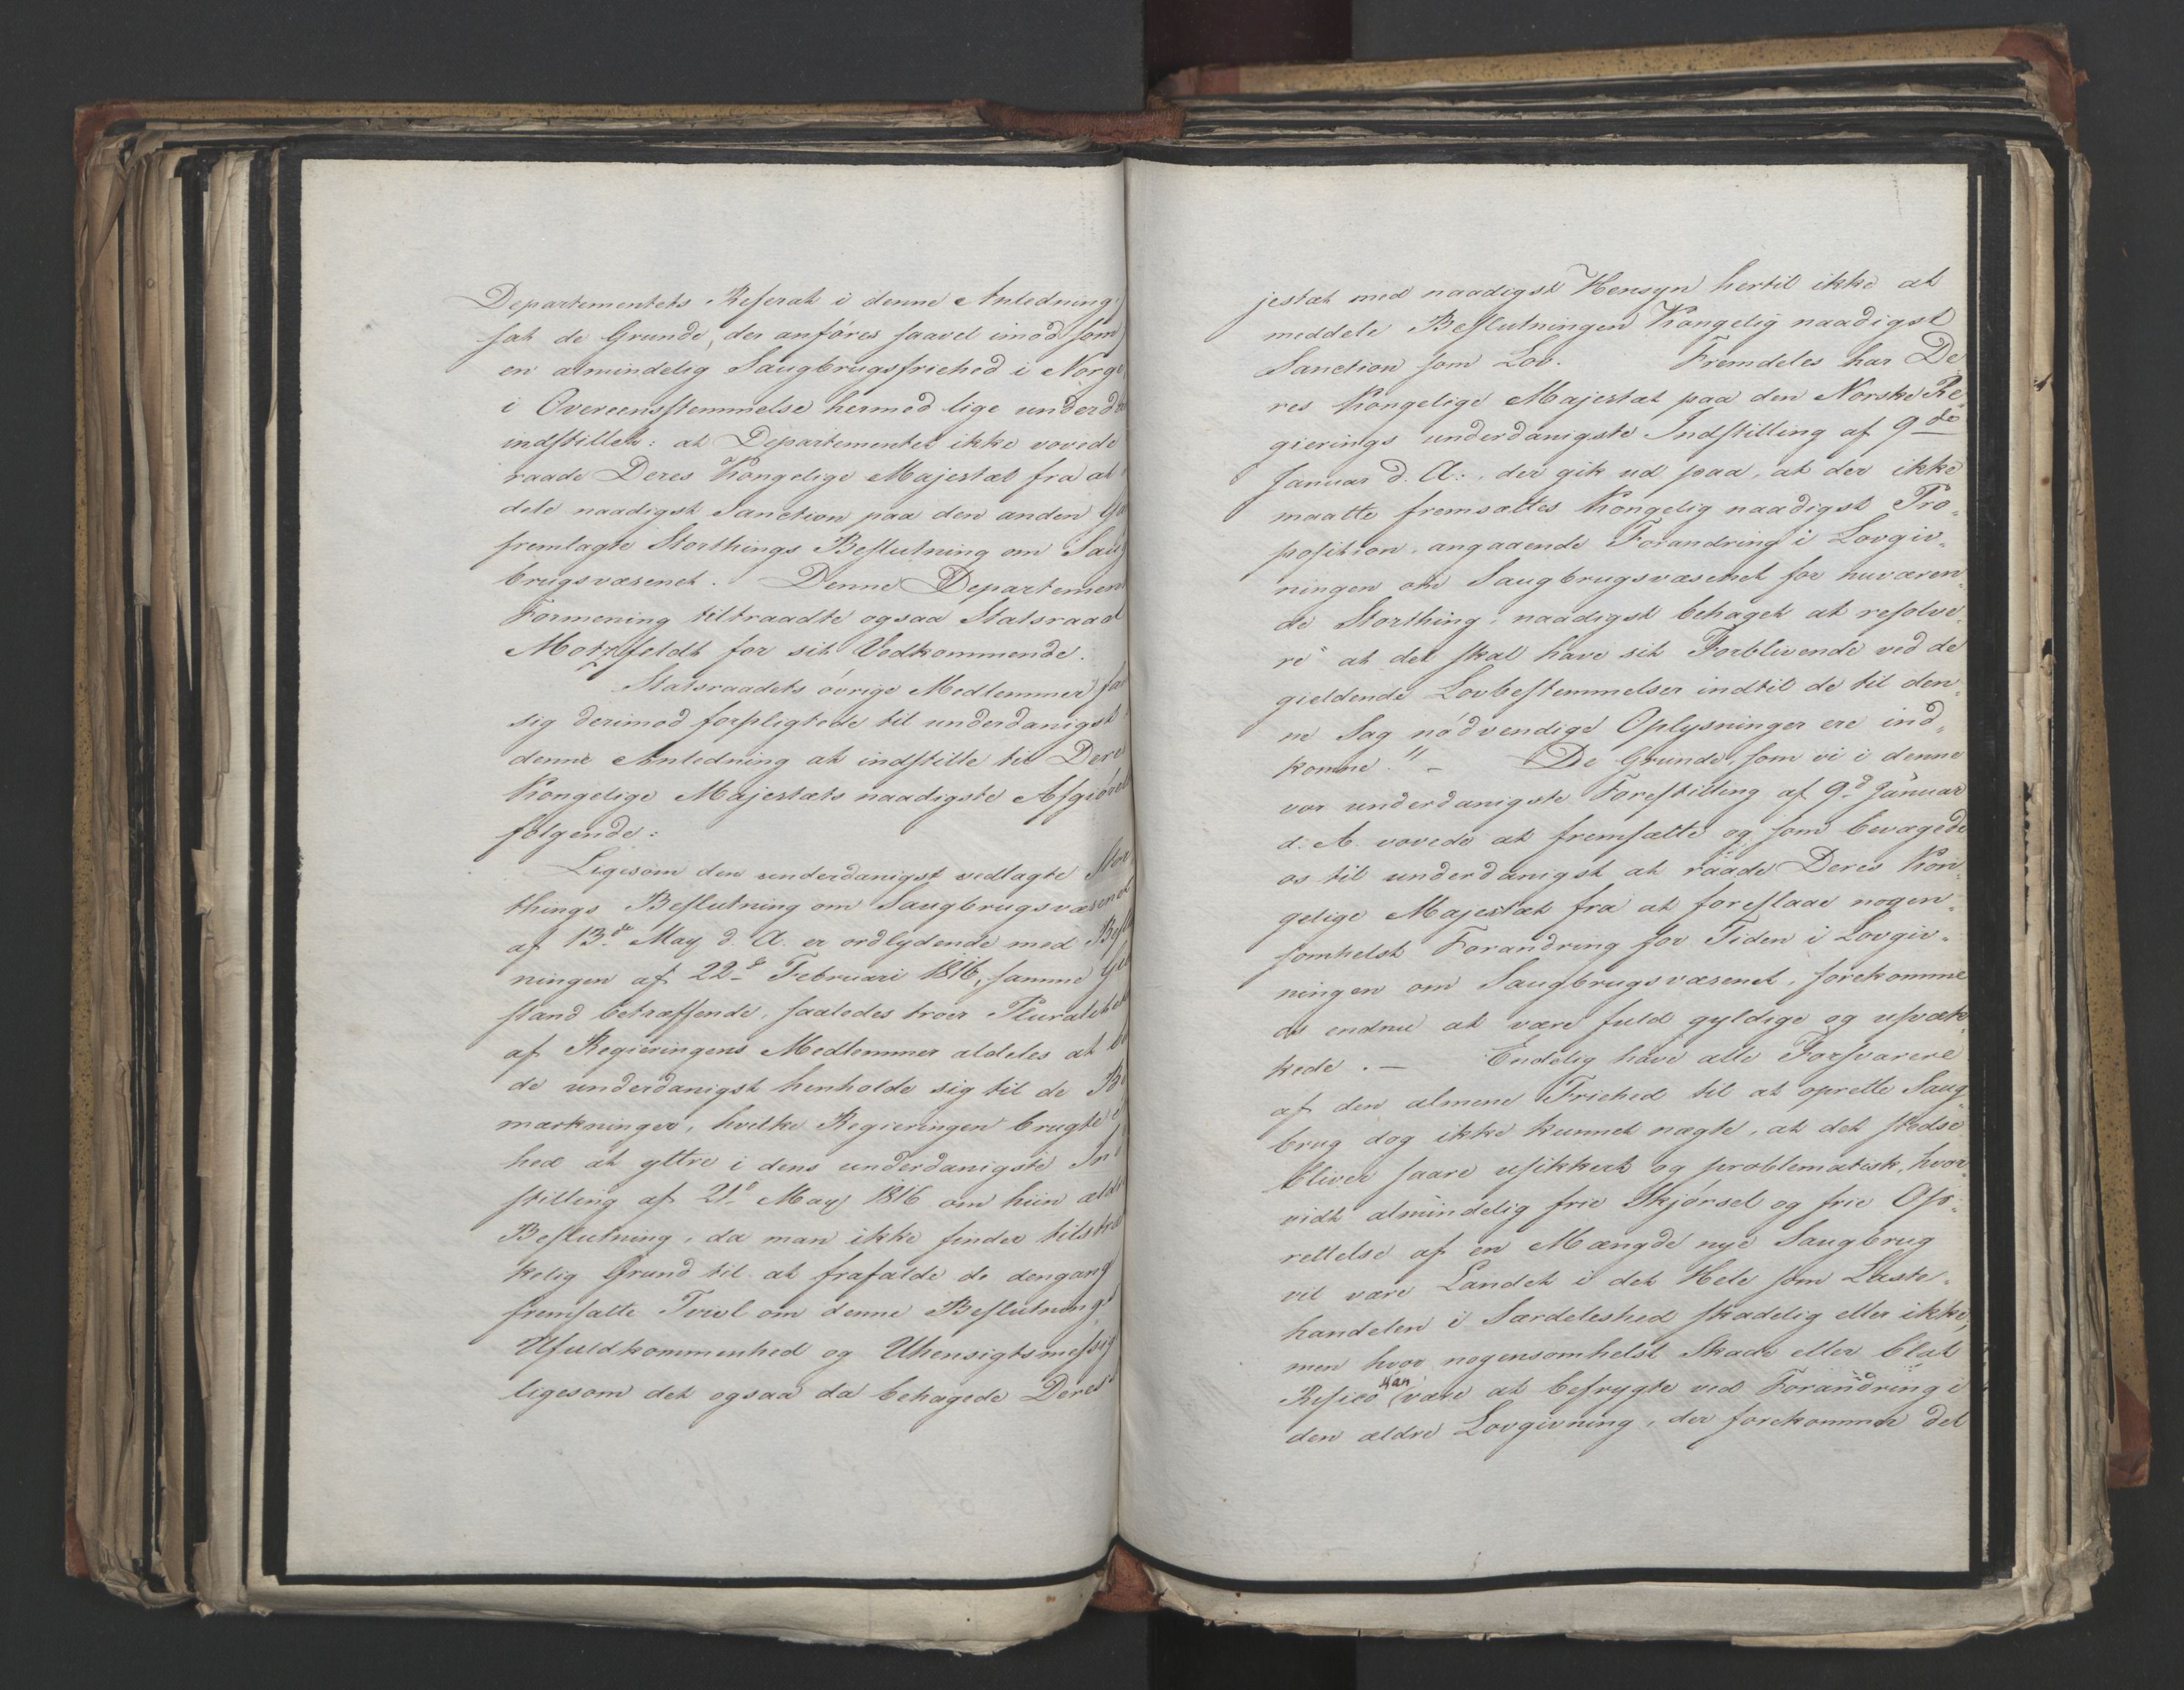 Departementets Referat i denne Anledning
sat de Grunde, der anføres saavel imod som
en almindelig Saugbrugsfriehed i Norge,
i Overeensstemmelse hermed lige underd
indstillet: at Departementet ikke vovede
raade Deres Kongelige Majestæt fra at
dele naadigst Sanction paa den anden
fremlagte Storthings Beslutning om Saug
brugsvæsenet. Denne Departement
Formening tiltraadte ogsaa Statsraad
Motzfeldt for sit Vedkommende.
Statsraadets øvrige Medlemmer
sig derimod forpligtede til underdanigst
denne Anledning at indstille til Deres
Kongelige Majestæts naadigste Afgiørel
følgende:
Ligesom den underdanigst vedlagte Stor
things Beslutning om Saugbrugsvæsenet
af 13de May d. A. er ordlydende med Besl
ningen af 22de Februari 1816, samme
stand betræffende, saaledes troer Pluralite
af Regieringens Medlemmer aldeles at
de underdanigst henholde sig til de Be
mærkninger, hvilke Regieringen brugte
hed at yttre i dens underdanigste In
stilling af 21de May 1816 om hiin æld
Beslutning, da man ikke finder tilstræ
kelig Grund til at frafalde de dengang
fremsatte Tvivl om denne Beslutnings
Ufuldkommenhed og Uhensigtsmessig
ligesom det ogsaa da behagede Deres
jestæt med naadigst Hensyn hertil ikke at
meddele Beslutningen Kongelig naadigst
Sanction som Lov. Fremdeles har De
res Kongelige Majestæt paa den Norske Re„
gierings underdanigste Indstilling af 9de
Januar d. A:, der gik ud paa, at der ikke
maatte fremsættes Kongelig naadigst Pro„
position, angaaende Forandring i Lovgiv„
ningen om Saugbrugsvæsenet for nuværen„
de Storthing, naadigst behaget at resolve„
re" at det skal have sit Forblivende ved de
gieldende Lovbestemmelser indtil de til den„
ne Sag nødvendige Oplysninger ere ind„
komne." – De Grunde, som vi i denne
vor underdanigste Forestilling af 9d Januar
d. A. vovede at fremsætte og som bevægede
os til underdanigst at raade Deres Kon„
gelige Majestæt fra at foreslaae nogen„
somhelst Forandring for Tiden i Lovgiv„
ningen om Saugbrugsvæsenet, forekomme
os endnu at være fuld gyldige og usvæk„
kede. – Endelig have alle Forsvarere
af den almene Friehed til at oprette Saug„
brug dog ikke kunnet nægte, at det stedse
bliver saare usikkert og problematisk, hvor„
vidt almindelig frie Skjørsel og frie Op„
rettelse af en Mængde nye Saugbrug
vil være Landet i det Hele som Laste„
handelen i Særdeleshed skadelig eller ikke,
men hvor nogensomhelst Skade eller blot
Risico kan være at befrygte ved Forandring i
den ældre Lovgivning, der forekommer det